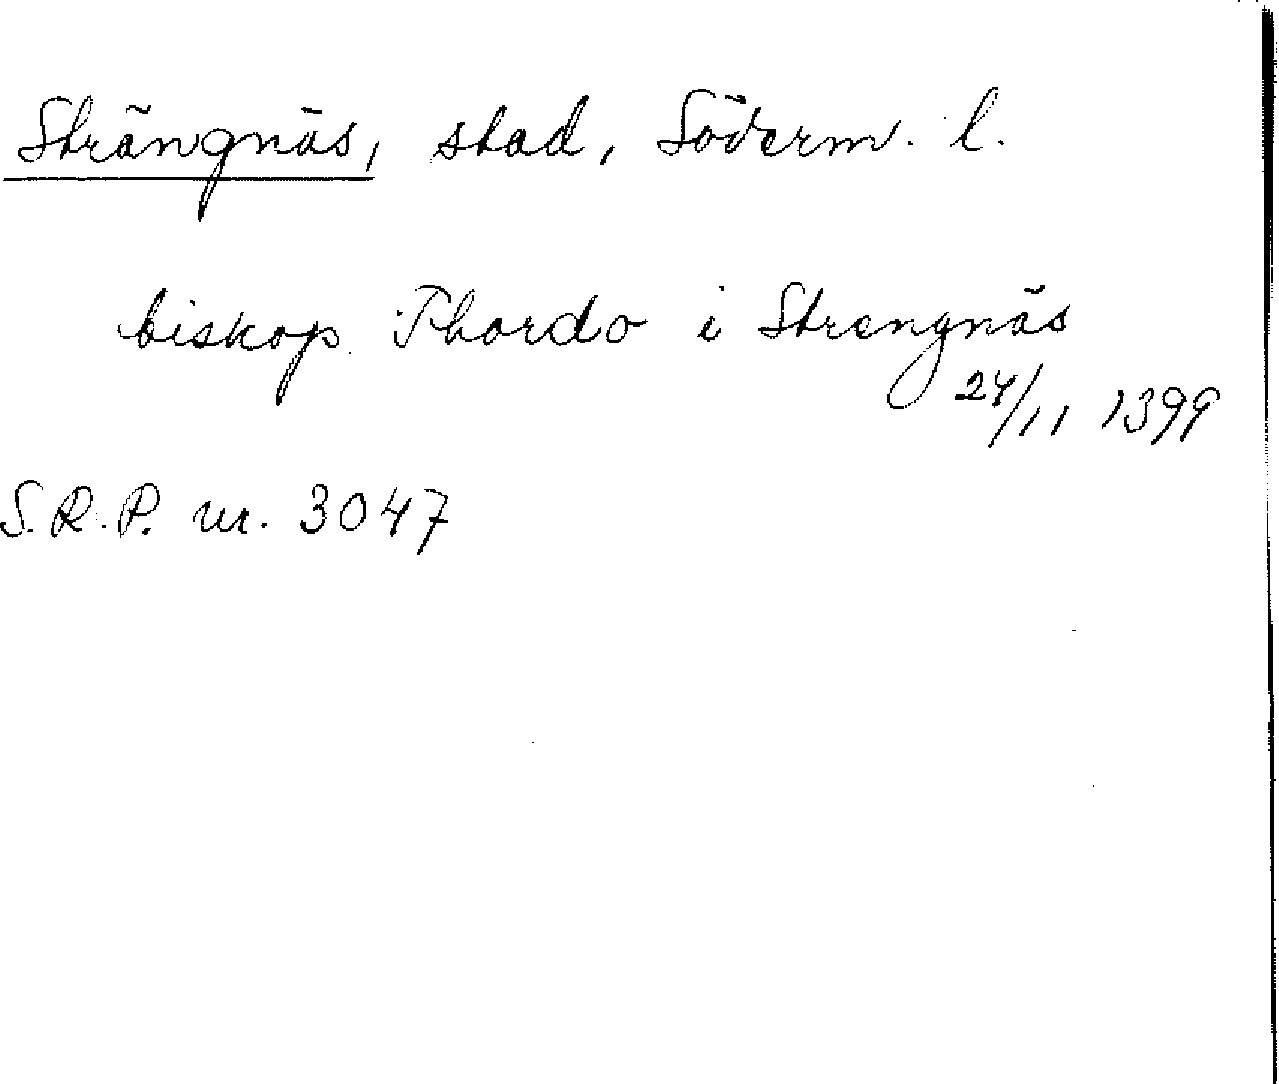 Strängnäs, stad, Söderm. l.
biskop Thordo i Strengnäs
24/11 1399
S.R.P. nr. 3047